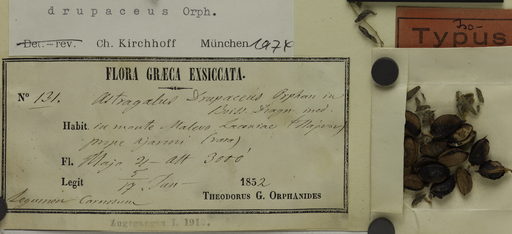 drupaceus Orph.
Det.-rev. Ch. Kirchhoff München 1974
Iso-
Typus
FLORA GRÆCA EXSICCATA.
No 131. Astragalus Drupaceus Orphan in
Boiss. Diagn. ined.
Habit. in monte Malevo Laconiae
prope (raro)
Fl. Majo 4 - Alt 3000'
Legit Jun 1852
THEODORUS G. ORPHANIDES
Legumen Carnosum